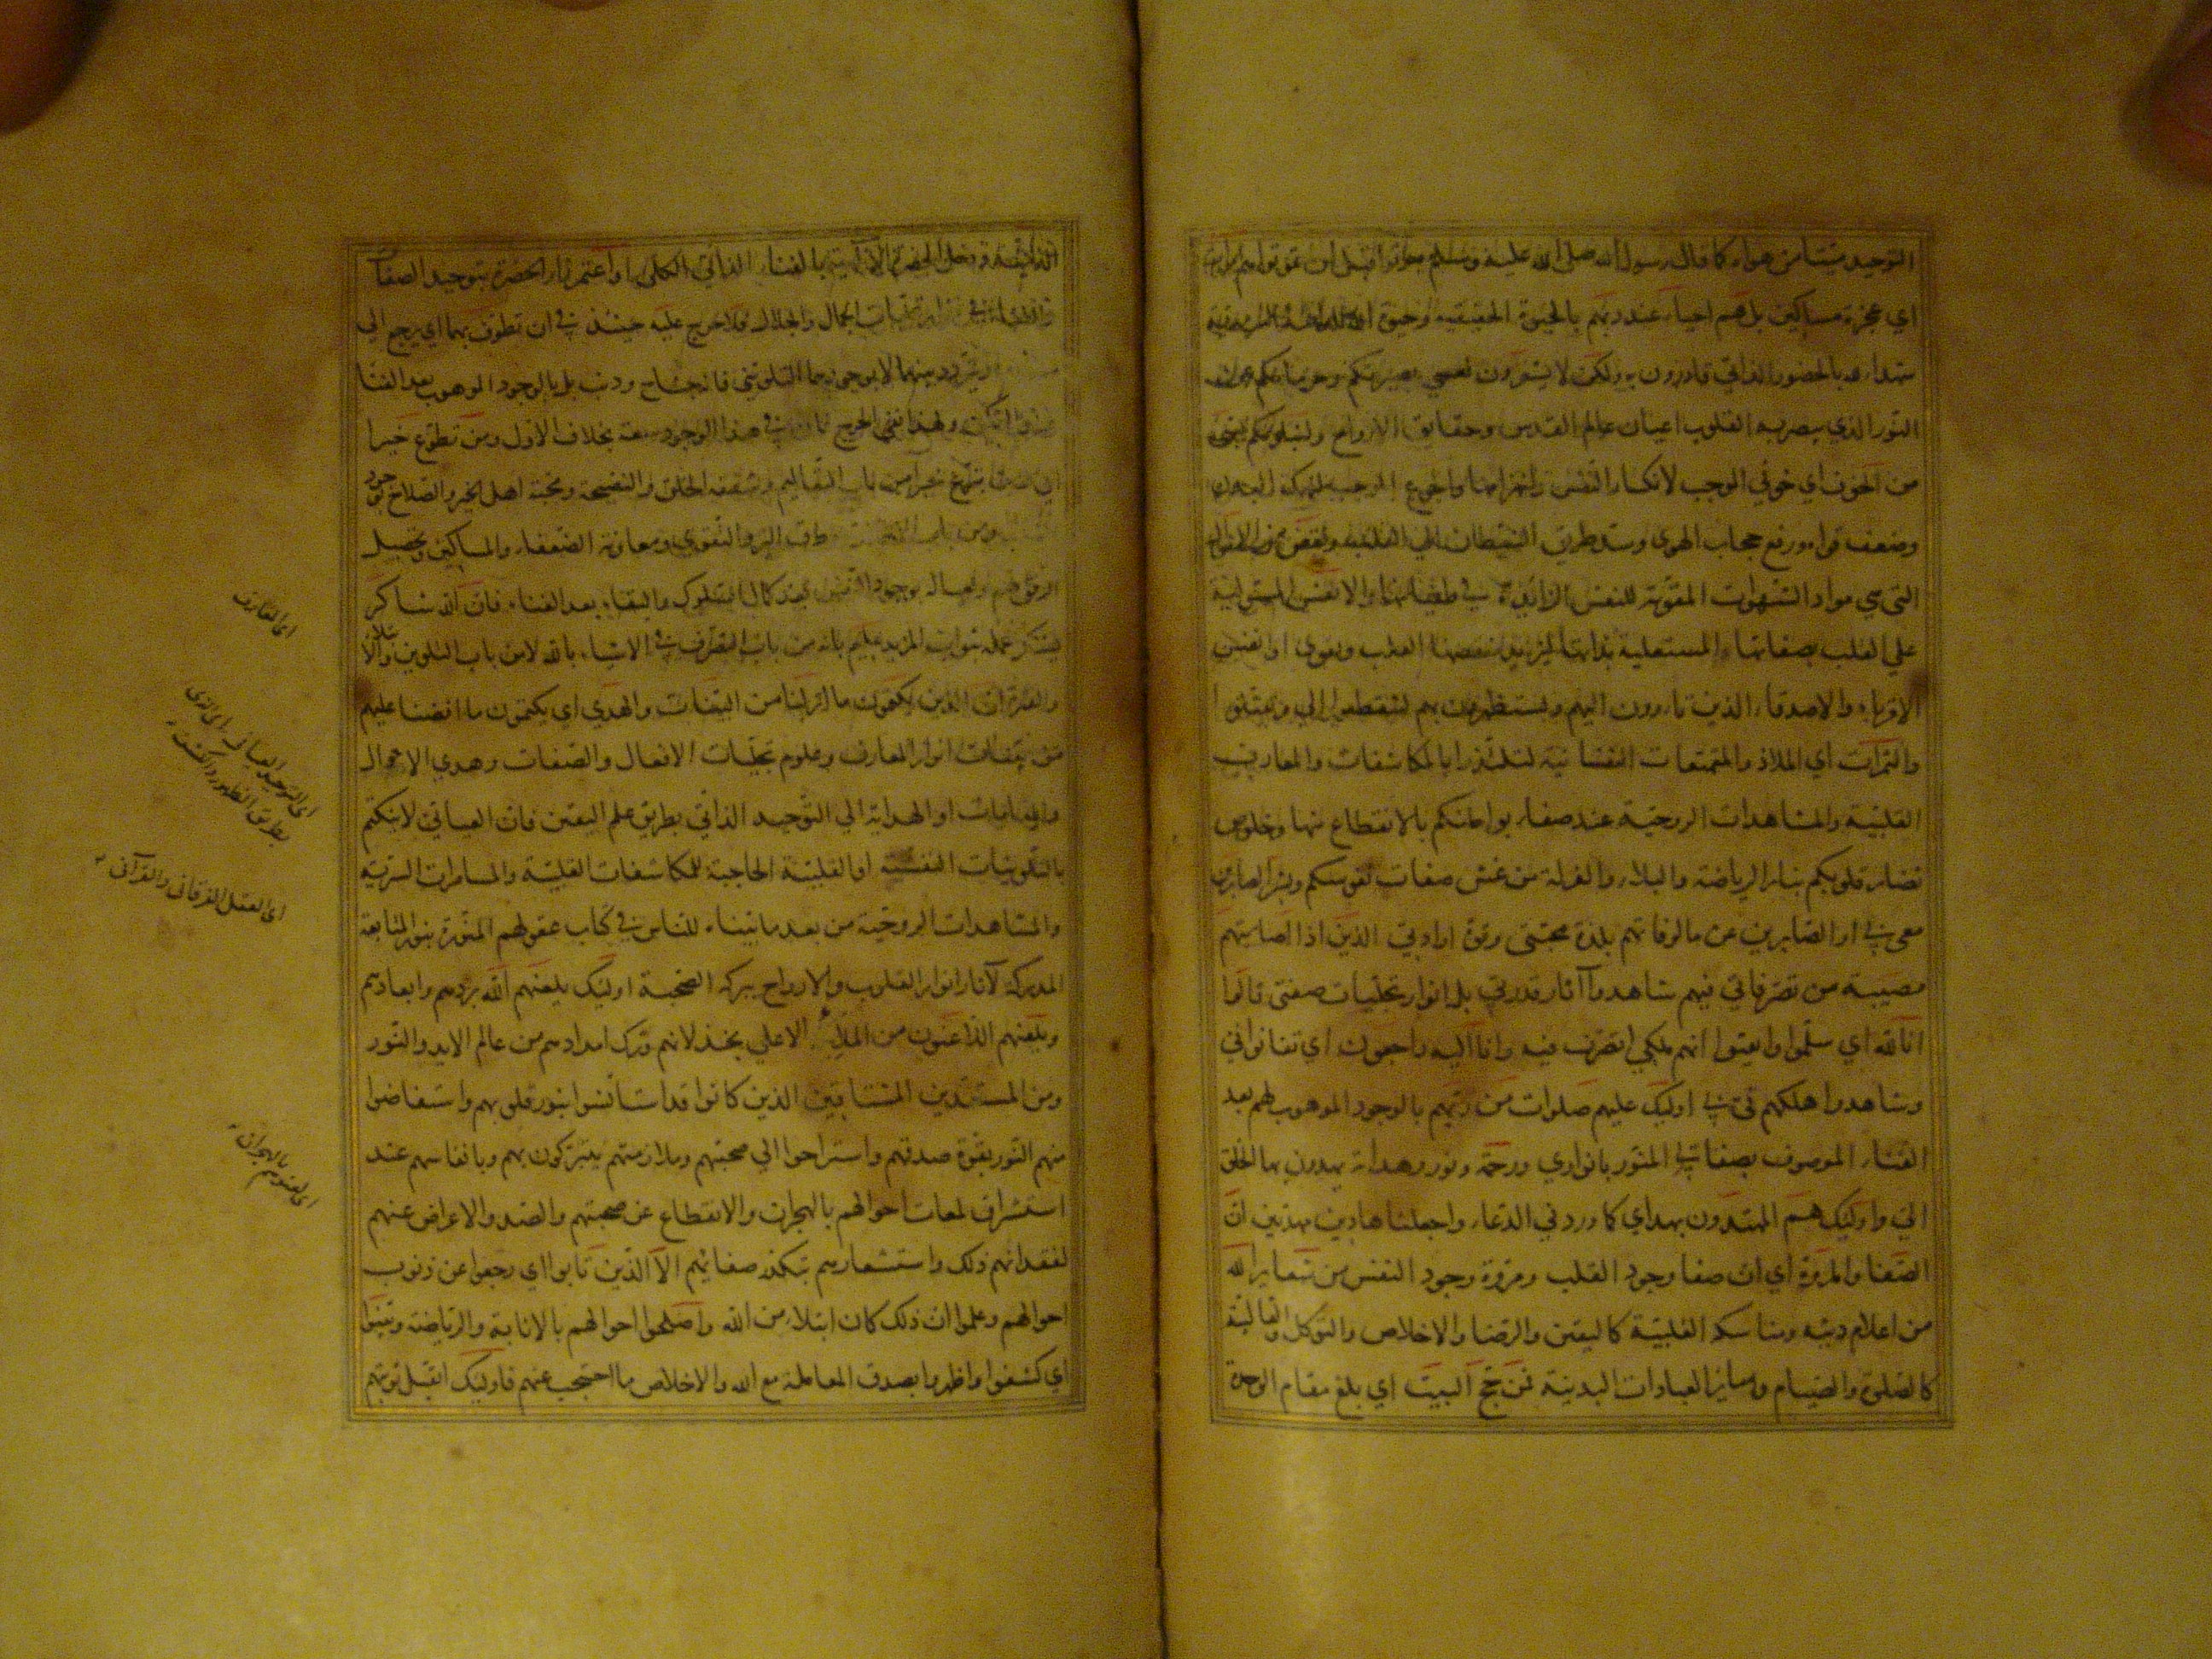 التوحيد ميتا من هواه كما قال رسول الله صلى الله عليه وسلم موتوا قبل ان تموتوا هم اموات
اي عجزة مساكين بل هم احياء عند ربهم بالحيوة الحقيقية وحيوة
شهداء لله بالحضور الذاتي قادرون به ولكن لا يشعرون لعمي بصيرتكم وحرمانكم عن
النور الذي يبصر به القلوب اعيان عالم القدس وحقايق الارواح ولنبلونكم بشئ
من الخوف اي خوفي الموجب لانكسار النفس وانهزامها والجوع الموجب لنهكة البدن
وضعف قواه ورفع حجاب الهوى وسد طريق الشيطان الي القلب ونقص من الاموال
التي هي مواد الشهوات المقوية للنفس الزائدة في طغيانها والانفس المستولية
علي القلب بصفاتها المستعلية بذاتها ليزيد بنقصها القلب ويقوي او انفس
الاقرباء والاصدقاء الذين تأوون اليهم وتستظهرون بهم لتنقطعوا الي وتبتلوا
والثمرات اي الملاذ والمتمتعات النفسانية لتلتذوا بالمكاشفات والمعارف
القلبية والمشاهدات الروحية عند صفاء بواطنكم بالانقطاع منها وخلوص
نضار قلوبكم بنار الرياضة والبلاء والعزلة من غش صفات نفوسكم وبشر الصابرين
معي بي او الصابرين عن مالوفاتهم بلذة محبتي وقوة ارادتي الذين اذا اصابتهم
مصيبة من تصرفاتي فيهم شاهدوا آثار قدرتي بل انوار تجليات صفتي قالوا
انا لله اي سلموا وايقنوا انهم ملكي اتصرف فيه وانا اليه راجعون اي تفانوا في
وشاهدوا هلكهم في بي اوليك عليهم صلوات من ربهم بالوجود الموهوب لهم بعد
الفناء الموصوف بصفاتي المنور بانواري ورحمة ونور وهداية يهدون بها الخلق
الي واوليك هم المهتدون بهداي كما ورد في الدعاء واجعلنا هادين مهديين ان
الصفا والمروة اي ان صفا وجود القلب ومروة وجود النفس من شعاير الله
من اعلام دينه ومناسكه القلبية كاليقين والرضا والاخلاص والتوكل والقالبية
كالصلوة والصيام وساير العبادات البدنية فمن حج البيت اي بلغ مقام الوحدة
الذاتية ودخل الحضرة الالهية بالفناء الذاتي الكلي او اعتمر زار الحضرة بتوحيد الصفات
والفناء في انوار تجليات الجمال والجلال فلا حرج عليه حينئذ في ان تطوف بهما اي يرجع الي
ويتردد بينهما لا بوجودهما التلويني فانه جناح وذنب بل بالوجود الموهوب بعد الفناء
التمكين ولهذا نفي الحرج فان في هذا الوجود سعة بخلاف الاول ومن تطوع خيرا
اي ومن تبرع خيرا من باب التعاليم وشفقة الخلق والنصيحة ومحبة اهل الخير والصلاح بوجود
ومن باب البر والتقوي ومعاونة الضعفاء والمساكين وتحصيل
الرفق لهم ولعياله بوجود النفس بعد كمال السلوك والبقاء بعد الفناء فان الله شاكر
يشكر عمله بثواب المزيد عليم بانه من باب التصرف في الاشياء بالله لا من باب التلوين والابتلاء
والفترة ان الذين يكتمون ما انزلنا من البينات والهدي اي يكتمون ما افضنا عليهم
من بينات انوار المعارف وعلوم تجليات الافعال والصفات وهدي الاحوال
والمقامات او الهداية الي التوحيد الذاتي بطريق علم اليقين فان العياني لا ينكتم
بالتلوينات النفسية او القلبية الحاجبة للمكاشفات القلبية والمسامرات السرية
والمشاهدات الروحية من بعد ما بيناه للناس في كتاب عقولهم المنورة بنور المتابعة
المدركة لآثار انوار القلوب والارواح ببركة الصحبة اوليك يلعنهم الله بردهم وابعادهم
ويلعنهم اللاعنون من الملأ الاعلي بخذلانهم وترك امدادهم من عالم الايد والنور
ومن المستعدين المشتاقين الذين كانوا قد استأنسوا بنور قلوبهم واستفاضوا
منهم النور بقوة صدقهم واستراحوا الي صحبتهم وملازمتهم يتبركون بهم وبانفاسهم عند
استشراق لمعات احوالهم بالهجران والانقطاع عن صحبتهم والصد والاعراض عنهم
لفقدانهم ذلك واستشعارهم بتكدر صفائهم الا الذين تابوا اي رجعوا عن ذنوب
احوالهم وعلموا ان ذلك كان ابتلاء من الله واصلحوا احوالهم بالانابة والرياضة وبينوا
اي كشفوا واظهروا بصدق المعاملة مع الله والاخلاص ما احتجب عنهم فاوليك اتقبل توبتهم
اي المعارف
اي التوحيد العياني اي الذي
بطريق الظهور والكشف
اي العقل الفرقاني والقرآني
اي لعنوهم بالهجران